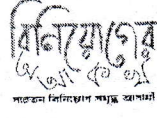 বিনিয়োগের
অ আ ক খ
সচেতন বিনিয়োগ সমৃদ্ধ আগামী